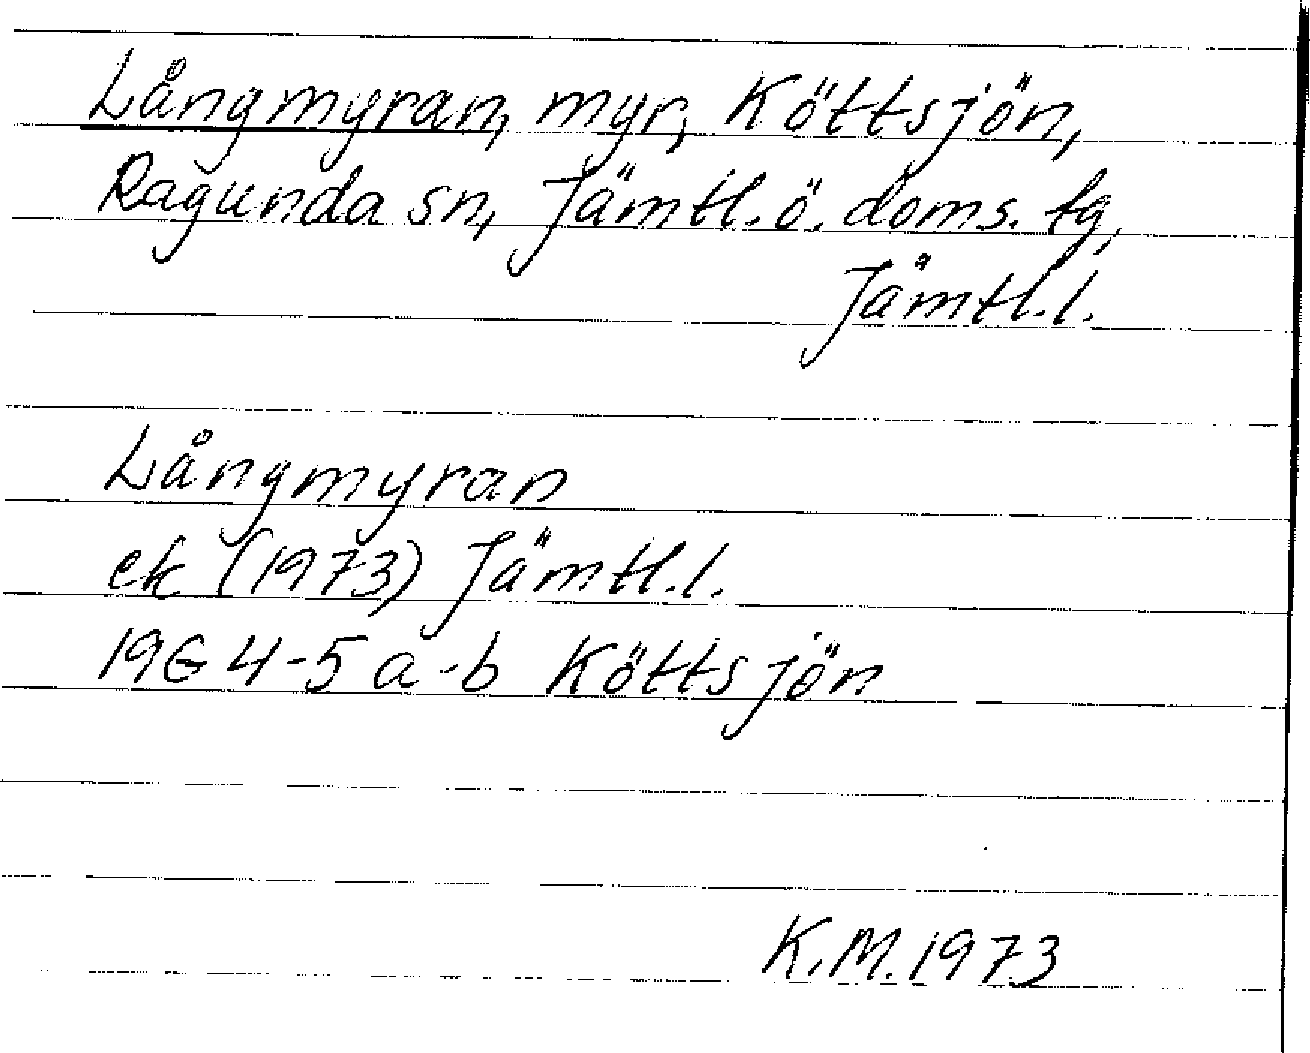 Långmyran, myr, Köttsjön,
Ragunda sn, Jämtl. ö. doms. tg,
Jämtl. l.
Långmyran
ek (1973) Jämtl. l.
19G 4-5 a-b Köttsjön
K.M. 1973